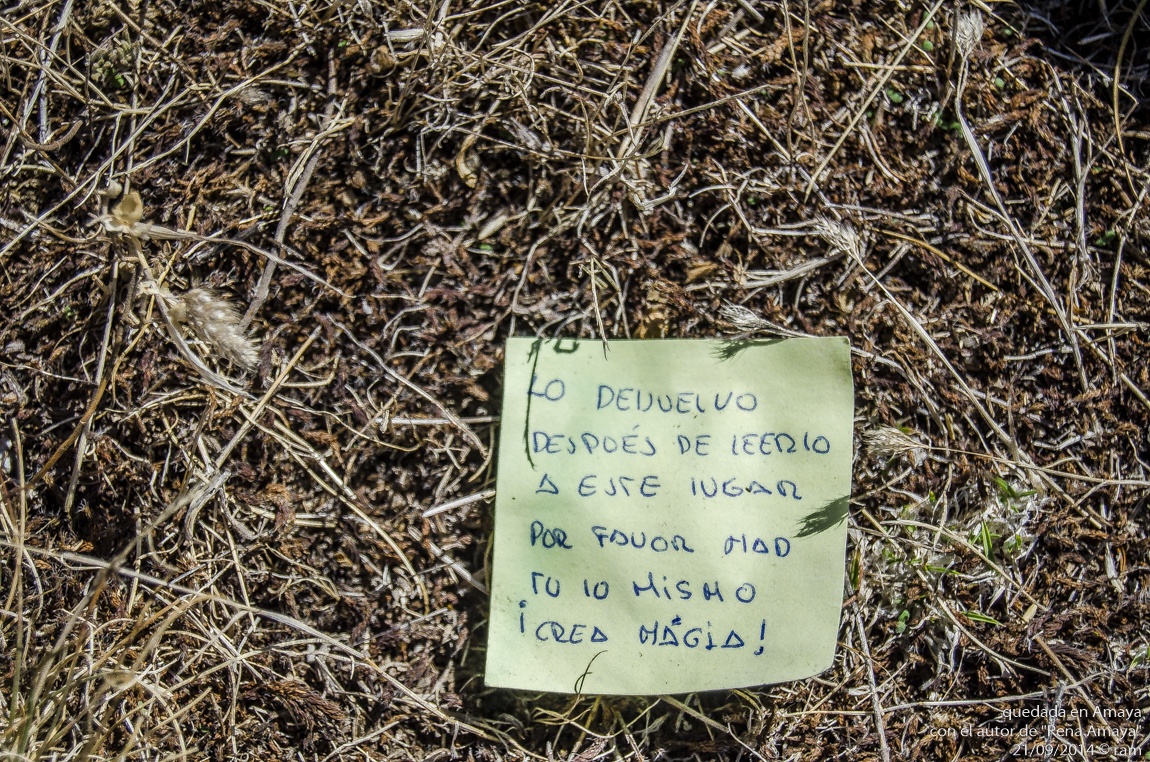 LO DEVUELVO
DESPUÉS DE LEERLO
A ESTE LUGAR
POR FAVOR HAD
TU LO MISMO
¡CREA MÁGIA!
quedada en Amaya
con el autor de "Peña Amaya"
21/09/2014 © ram